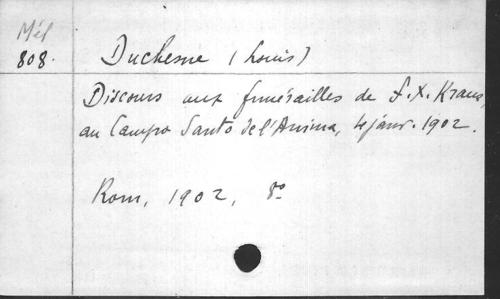 Mél
808.
Duchesne (Louis)
Discours aux funérailles de F. X. Kraus,
au Campo Santo de l'Anima, 4 janv. 1902.
Rom, 1902, 8º